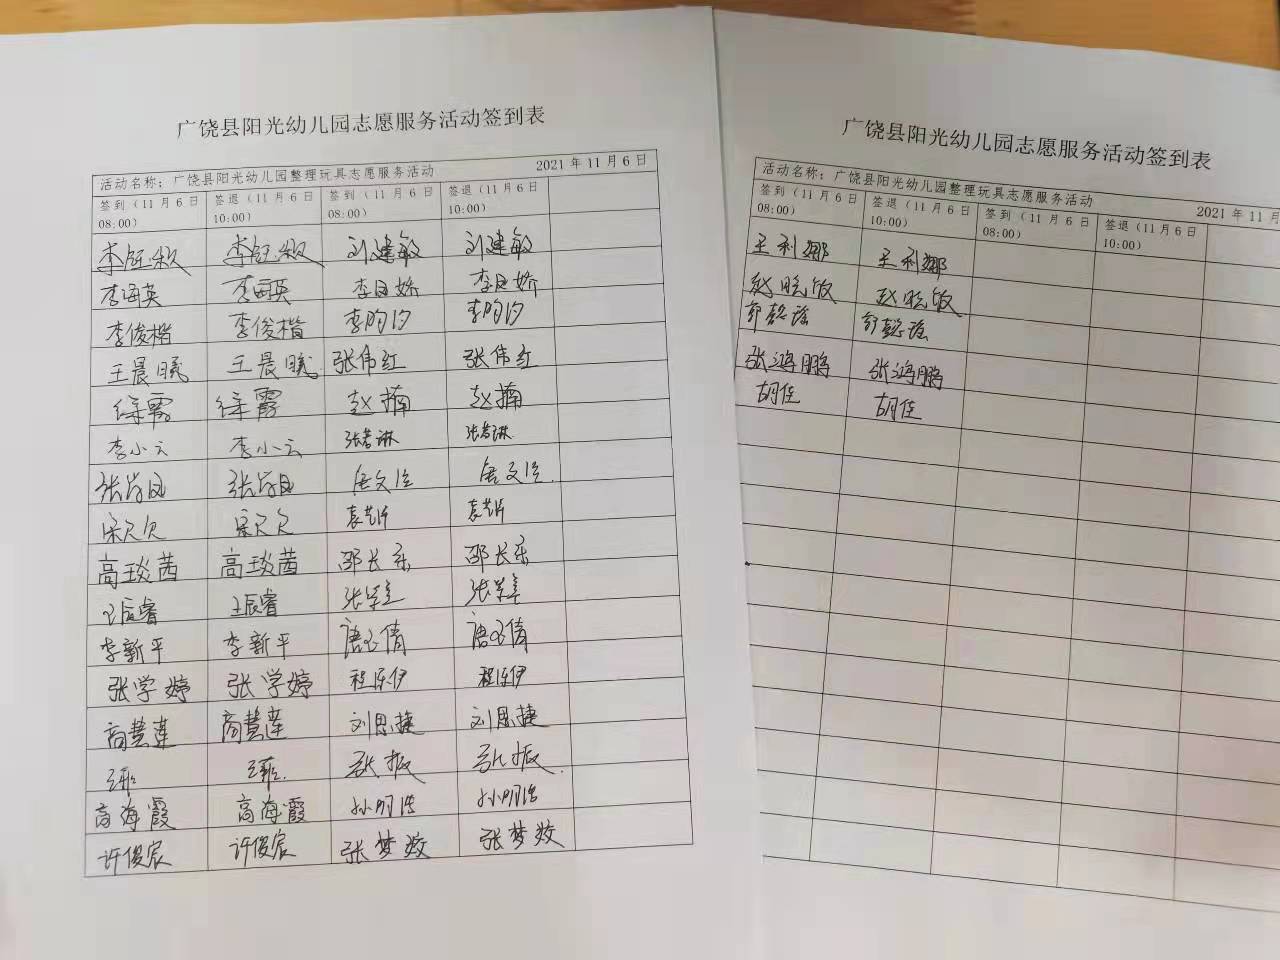 广饶县阳光幼儿园志愿服务活动签到表
活动名称：广饶县阳光幼儿园整理玩具志愿服务活动 2021年11月6日
签到（11月6日 签退（11月6日 签到（11月6日 签退（11月6日
08:00） 10:00） 08:00） 10:00）
刘建敏 刘建敏
李国英 李国英
李俊楷 李俊楷 李昀汐 李昀汐
王晨曦 王晨曦 张伟红 张伟红
徐霞 徐霞 赵楠 赵楠
李小云 李小云
高琰茜 高琰茜 邵长乐 邵长乐
王辰睿 王辰睿
李新平 李新平 唐玉倩 唐玉倩
张学婷 张学婷
高慧莲 高慧莲 刘思捷 刘思捷
张振 张振
高海霞 高海霞 孙明浩 孙明浩
许俊宸 许俊宸 张梦姣 张梦姣
广饶县阳光幼儿园志愿服务活动签到表
活动名称：广饶县阳光幼儿园整理玩具志愿服务活动 2021年11月
签到（11月6日 签退（11月6日 签到（11月6日 签退（11月6日
08:00） 10:00） 08:00） 10:00）
王利娜 王利娜
赵晓饭 赵晓饭
舒懿谣 舒懿谣
张鸿鹏 张鸿鹏
胡佳 胡佳